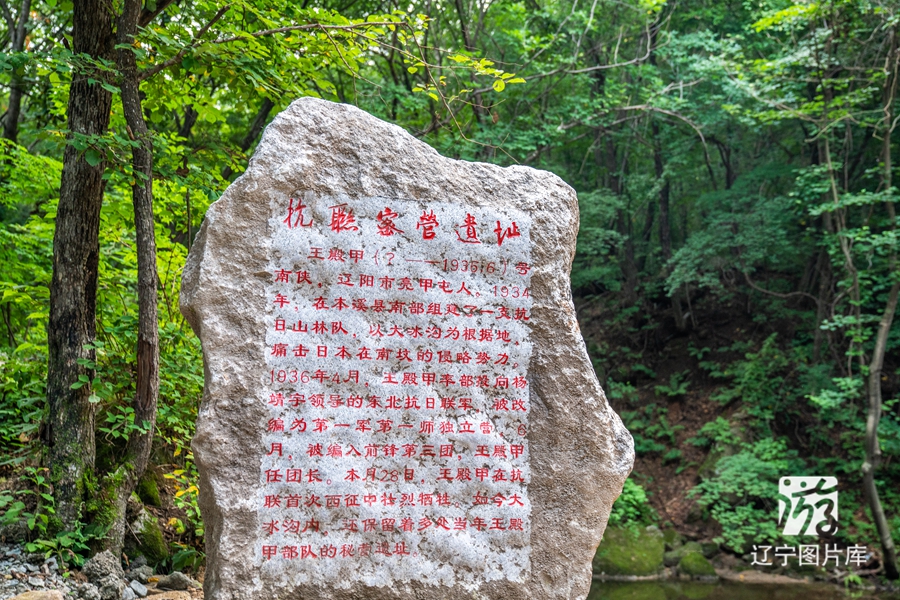 抗联密营遗址
王殿甲（？——1936.6）号
南侠，辽阳市亮甲屯人。1934
年，在本溪县南部组建了一支抗
日山林队，以大冰沟为根据地，
痛击日本在南坟的侵略势力。
1936年4月，王殿甲率部投向杨
靖宇领导的东北抗日联军，被改
编为第一军第一师独立营。6
月，被编入前锋第三团，王殿甲
任团长。本月28日，王殿甲在抗
联首次西征中壮烈牺牲。如今大
冰沟内，还保留着多处当年王殿
甲部队的秘营遗址。
游
辽宁图片库